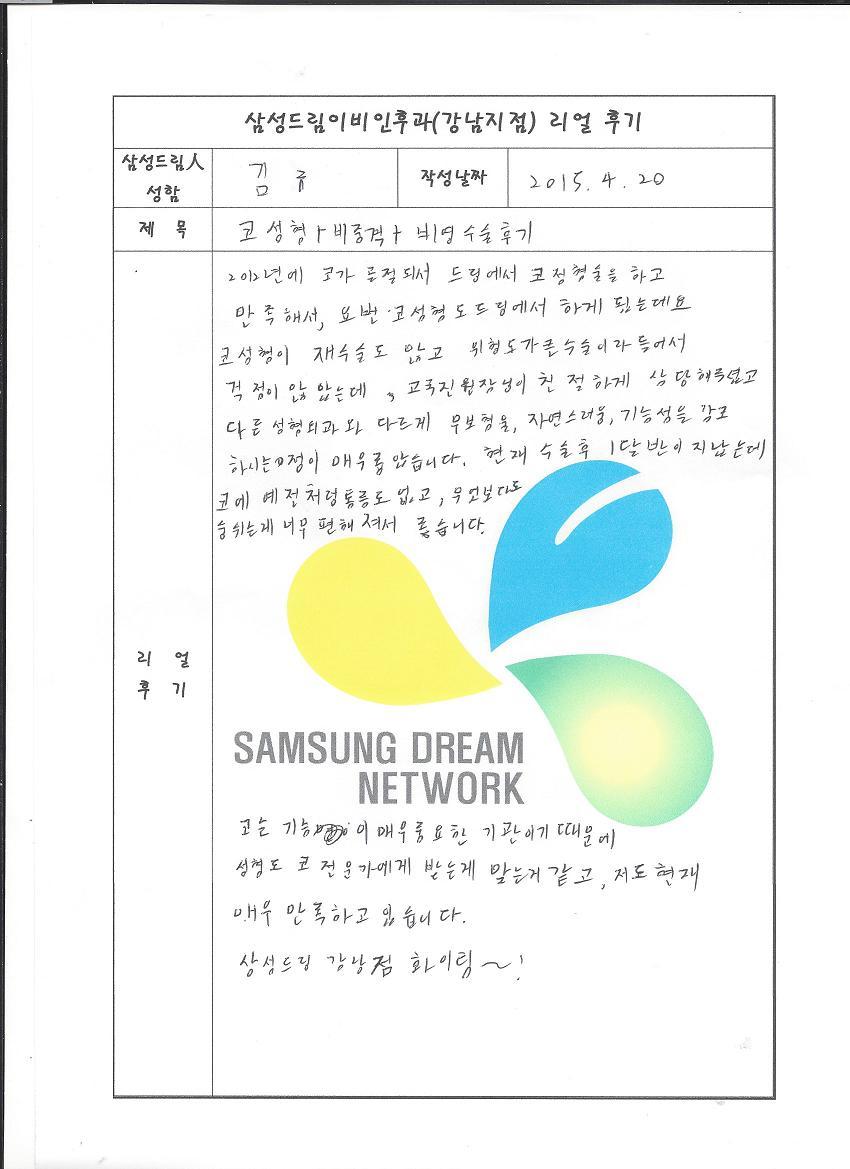 삼성드림이비인후과(강남지점) 리얼 후기
삼성드림人 성함
김
작성날짜
2015. 4. 20
제 목
코 성형 + 비중격 + 비염 수술 후기
2012년에 코가 골절되서 드림에서 코정형술을 하고
만족해서, 요번 코성형도 드림에서 하게 됬는데요
코성형이 재수술도 많고 위험도가 큰 수술이라 들어서
걱정이 많았는데, 고국진원장님이 친절하게 상담해주셨고
다른 성형외과와 다르게 무보형물, 자연스러움, 기능성을 강조
하시는 점이 매우 좋았습니다. 현재 수술후 1달 반이 지났는데
코에 예전처럼 통증도 없고, 무엇보다도
숨쉬는게 너무 편해져서 좋습니다.
리 얼
후 기
SAMSUNG DREAM
NETWORK
코는 기능이 매우 중요한 기관이기 때문에
성형도 코 전문가에게 받는게 맞는거 같고, 저도 현재
매우 만족하고 있습니다.
삼성드림 강남점 화이팅~!